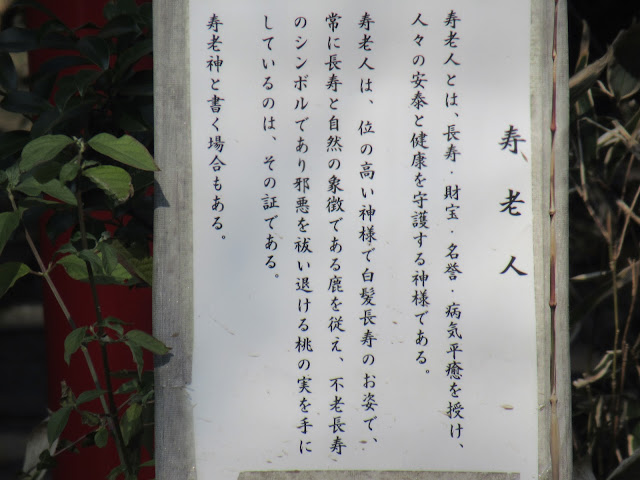 寿老人
寿老人とは、長寿・財宝・名誉・病気平癒を授け、
人々の安泰と健康を守護する神様である。
寿老人は、位の高い神様で白髪長寿のお姿で、
常に長寿と自然の象徴である鹿を従え、不老長寿
のシンボルであり邪悪を祓い退ける桃の実を手に
しているのは、その証である。
寿老神と書く場合もある。